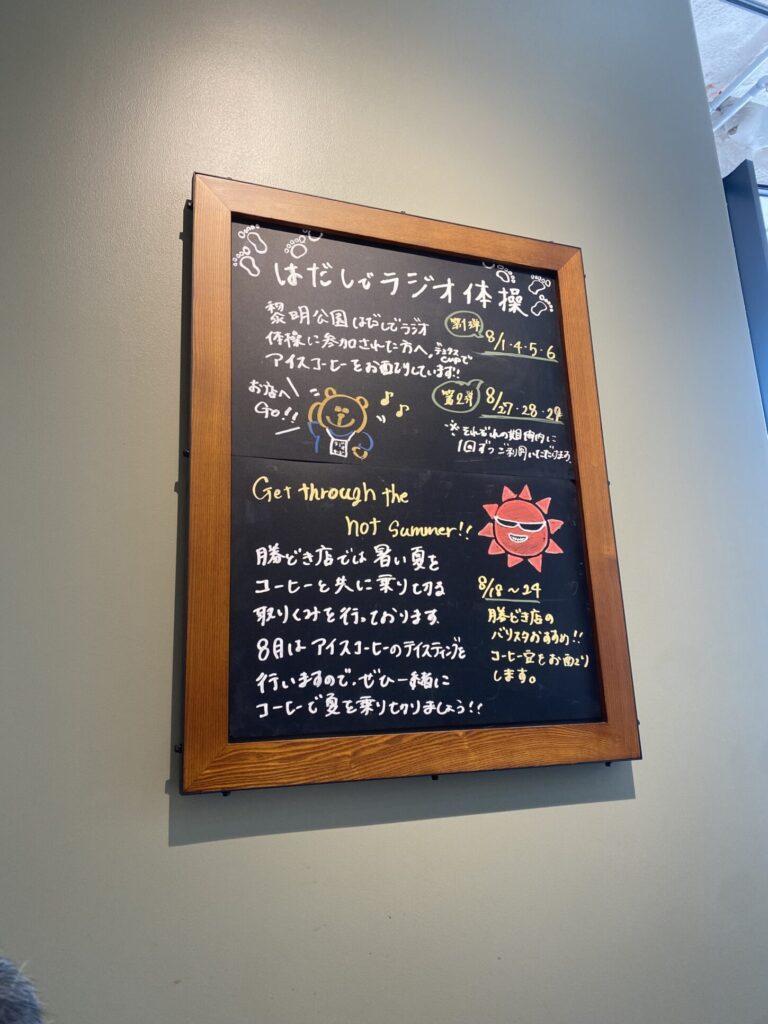 はだしでラジオ体操
黎明公園はだしでラジオ
体操に参加された方へ,デミタスcupで
アイスコーヒーをお配りしています!!
お店へ
Go!!
第1弾
8/1・4・5・6
第2弾
8/27・28・29
※それぞれの期間内に
1回ずつご利用いただけます。
Get through the
hot summer!!
勝どき店では暑い夏を
コーヒーと共に乗り切る
取りくみを行っております。
8月はアイスコーヒーのテイスティングを
行いますので、ぜひ一緒に
コーヒーで夏を乗り切りましょう!!
8/18～24
勝どき店の
バリスタおすすめ!!
コーヒー豆をお配り
します。